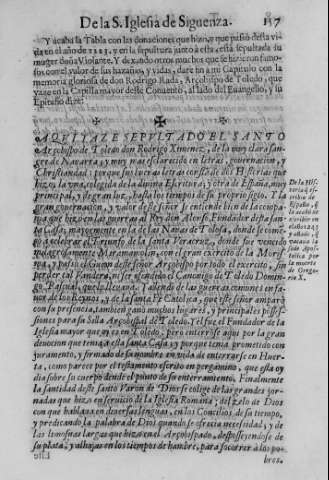 De la S. Iglesia de Siguenza. 157
Y acaba la Tabla con las donaciones que hizo, y que passò desta vi-
da en el año de 1123. y en la sepultura junto a esta, està sepultada su
muger doña Violante. Y dexando otros muchos que se hizieron famo-
sos con el valor de sus hazañas, y vidas, darè fin a este Capitulo con la
memoria gloriosa de don Rodrigo Rada, Arçobispo de Toledo, que
yaze en la Capilla mayor deste Convento, al lado del Euangelio, y su
Epitafio dize:
AQVI YAZE SEPVLTADO EL SANTO
Arçobispo de Toledo don Rodrigo Ximenez, de la muy clara san-
gre de Navarra, y muy mas esclarecido en letras, governacion, y
Christiandad: porque sus lucidas letras consta de dos Historias que
hizo, la vna, colegida de la divina Escritura; y otra de España, muy
principal, y de gran luz, hasta los tiempos de su proprio siglo. Y la
gran governacion, y valor deste señor se entiende bien de la compa-
ñia que hizo en las guerras al Rey don Alonso, Fundador desta san-
ta Casa; mayormente en la de las Navas de Tolosa, donde se comen-
çò a celebrar el Triunfo de la santa Veracruz, donde fue vencido
milagrosamente Maramamolin, con el gran exercito de la Moris-
ma, y passò el Guion deste señor Arçobispo por todo el exercito, sin
perder cal Vandera, ni ser ofendido el Canonigo de Toledo Domin-
go Pascual, que la llevava. Y dexado de las guerras comunes en fa-
vor de los Reynos, y de la santa Fè Catolica, que este señor amparò
con su presencia, tambien ganò muchos lugares, y principales posses-
siones para su Silla Arçobispal de Toledo, y èl fue el Fundador de la
Iglesia mayor que ay en Toledo; pero enterròse aqui por la gran
devocion que tenia a esta santa Casa, y porque tenia prometido con
juramento, y firmado de su nombre en vida de enterrarse en Huer-
ta, como parece por el testamento escrito en pergamino, que està oy
dia sobre su cuerpo desde el punto de su enterramiento. Finalmente
la santidad deste santo Varon de Dios se colige de las grandes jor-
nadas que hizo en servicio de la Iglesia Romana; del zelo de Dios
con que hablava en diversas lenguas, en los Concilios de su tiempo,
y predicando la palabra de Dios quando se ofrecia necessidad, y de
las limosnas largas que hizo en el Arçobispado, despojandose de
su plata, y alhajas en los tiempos de hambre, para socorrer à los po-
bres.
De la His-
toria q̃ es-
crivio de
España, q̃
la acabò
a 31 de
Março
vacante la
sede Apos-
tolica por
la muerte
de Grego-
rio X.